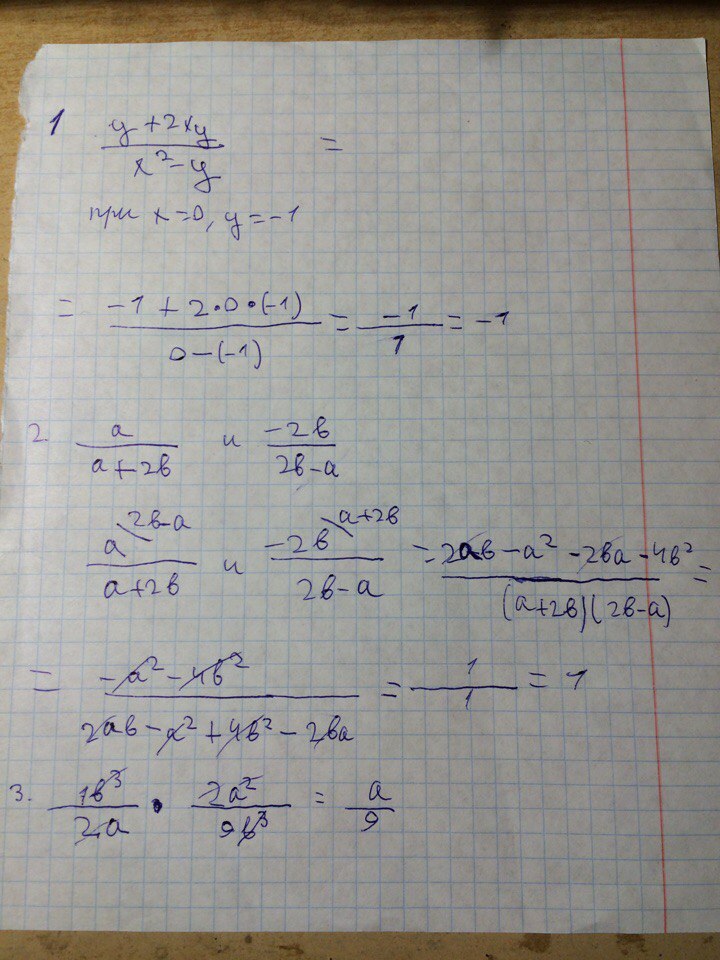 1 (y + 2xy)/(x² - y) =
при x = 0, y = -1
= (-1 + 2·0·(-1))/(0 - (-1)) = -1/1 = -1
2. a/(a + 2в) и -2в/(2в - a)
a^(2в-a)/(a + 2в) и -2в^(a+2в)/(2в - a) = (2aв - a² - 2вa - 4в²)/((a+2в)(2в-a)) =
= (-a² - 4в²)/(2aв - a² + 4в² - 2вa) = 1/1 = 1
3. 1в³/2a · 2a²/9в³ = a/9